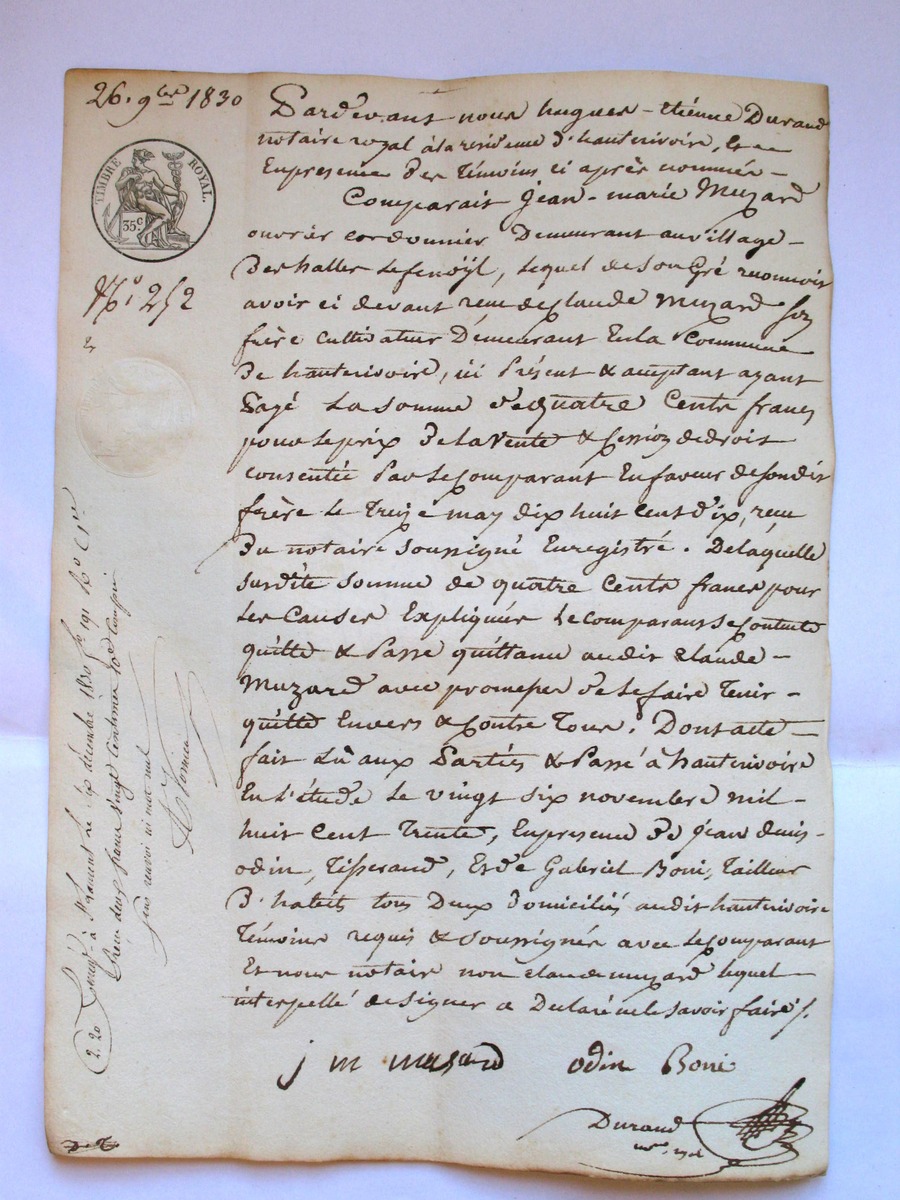 26. 9bre 1830
TIMBRE ROYAL.
35c
N° 252
Pardevant nous hugues-étienne Durand
notaire royal à la residence d'hauterivoire, & en
Enpresence des Témoins ci après nommés -
Comparait Jean-marie Muzard
ouvrier cordonnier Demeurant au village -
Des halles Lefenoÿl, lequel de son Gré reconnoit
avoir ci devant recu de Claude Muzard son
frère Cultivateur Demeurant En la Commune
De hauterivoire, ici Présent & acceptant ayant
Payé La somme de quatre Cents francs
pour le prix De la Vente & Cession de droit
consentie Par le Comparant En faveur de son dit
frère le Treize may dix huit Cent dix, recu
Du notaire soussigné Enregistré. De laquelle
susdite somme de quatre Cents francs pour
Les Causes Expliquées le comparant se Contente
quitte & Passe quittance audit Claude -
Muzard avec promesses De le faire Tenir -
quitte Envers & Contre Tous. Dont acte -
fait Lû aux Parties & Passé à hauterivoire
En l'étude Le vingt six novembre mil -
huit Cent Trente, En presence De Jean
odin, Tisserand, Et de Gabriel Boni, Tailleur
D'habits tous Deux Domiciliés audit hauterivoire
Témoins requis & soussignés avec le comparant
Et nous notaire non Claude muzard lequel
interpellé de signer a Declaré ne le savoir faire ./.
j m musard odin Boni
Durand
2. 20
à le six décembre 1830 f° 191 R° C 1re
Reçu deux francs vingt centimes 10e compris
sans renvoi ni mot nul